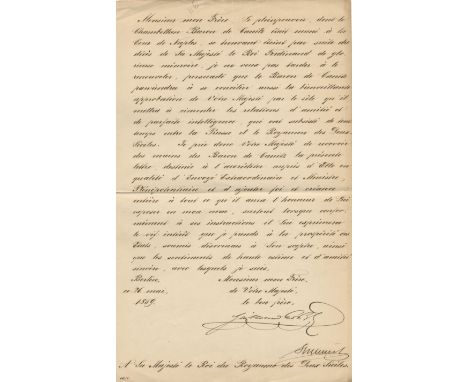 Monsieur mon Frère. Le pleinpouvoir, dont le
Chambellan Baron de Canitz était muni à la
Cour de Naples, se trouvant éteint par suite du
décès de Sa Majesté le Roi Ferdinand de glo-
rieuse mémoire, je ne veux pas tarder à le
renouveler, persuadé que le Baron de Canitz
parviendra à se concilier aussi la bienveillante
approbation de Votre Majesté par le zèle qu'il
mettra à cimenter les relations d'amitié et
de parfaite intelligence qui ont subsisté de tout
temps entre la Prusse et le Royaume des Deux
Siciles. Je prie donc Votre Majesté de recevoir
des mains du Baron de Canitz la présente
lettre, destinée à l'accréditer auprès d'Elle en
qualité d'Envoyé Extraordinaire et Ministre
Plénipotentiaire et d'ajouter foi et créance
entière à tout ce qu'il aura l'honneur de Lui
exposer en mon nom, surtout lorsque confor-
mément à ses instructions il Lui exprimera
le vif intérêt que je prends à la prospérité des
Etats, soumis désormais à Son sceptre, ainsi
que les sentiments de haute estime et d'amitié
sincère, avec lesquels je suis,
Berlin, Monsieur mon Frère,
ce 26 mai de Votre Majesté,
1859. le bon frère,
A Sa Majesté le Roi du Royaume des Deux Siciles.